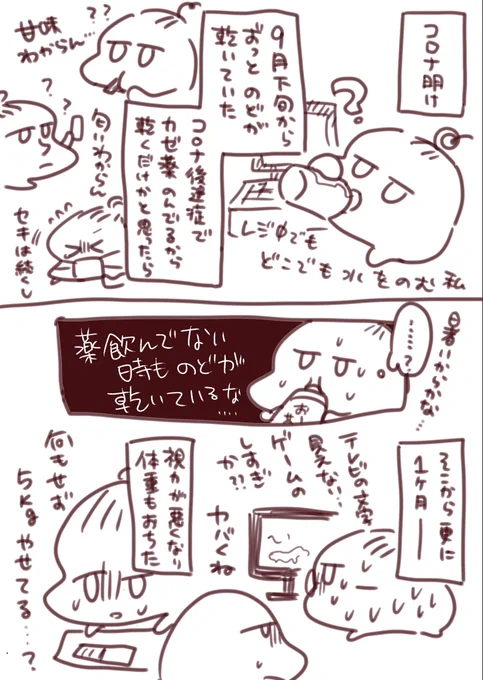 コロナ明け
9月下旬から
ずっと のどが
乾いていた
コロナ後遺症で
カゼ薬 のんでるから
乾くだけかと思ったら
?
レジ中でも
どこでも水をのむ私
??
甘味
わからん…
??
匂いわからん
セキは続くし
暑いからかな…
……?
薬飲んでない
時も のどが
乾いているな
….
そこから更に
1ヶ月―
テレビの文字
見えない…
ゲームの
しすぎ
か??
ヤバくね
視力が悪くなり
体重もおちた
何もせず
5kgやせてる…?